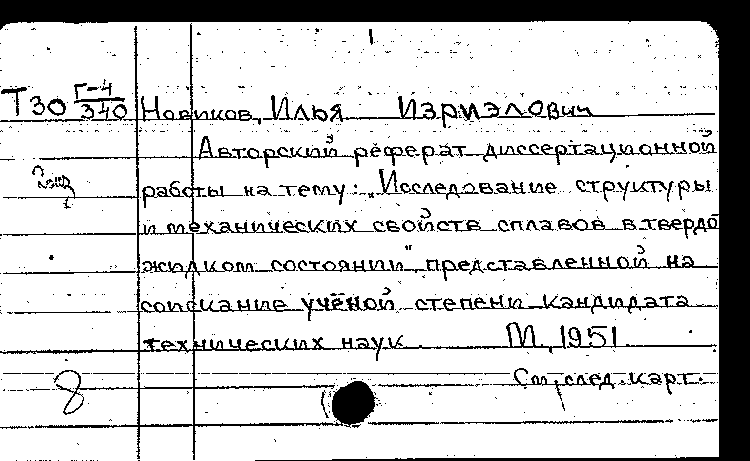 Т30 Г-4/340 Новиков, Илья Израилович
Авторский реферат диссертационной
работы на тему: „Исследование структуры
и механических свойств сплавов в твердо
жидком состоянии" представленной на
соискание учёной степени кандидата
технических наук. М, 1951
См, след. карт.
8